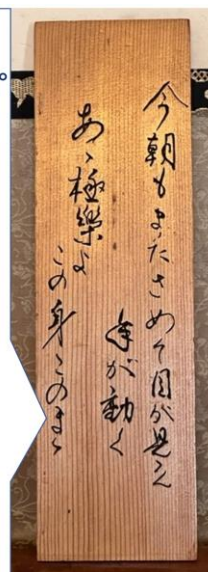 今朝もまたさめて目が見え
手が動く
あゝ極樂よ
この身このまゝ
。